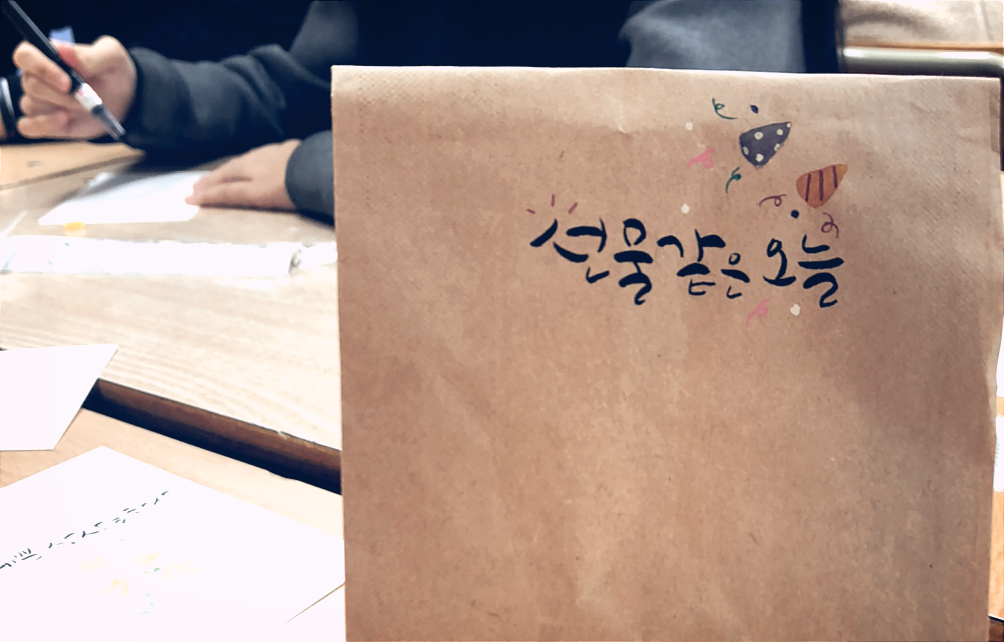 선물같은 오늘